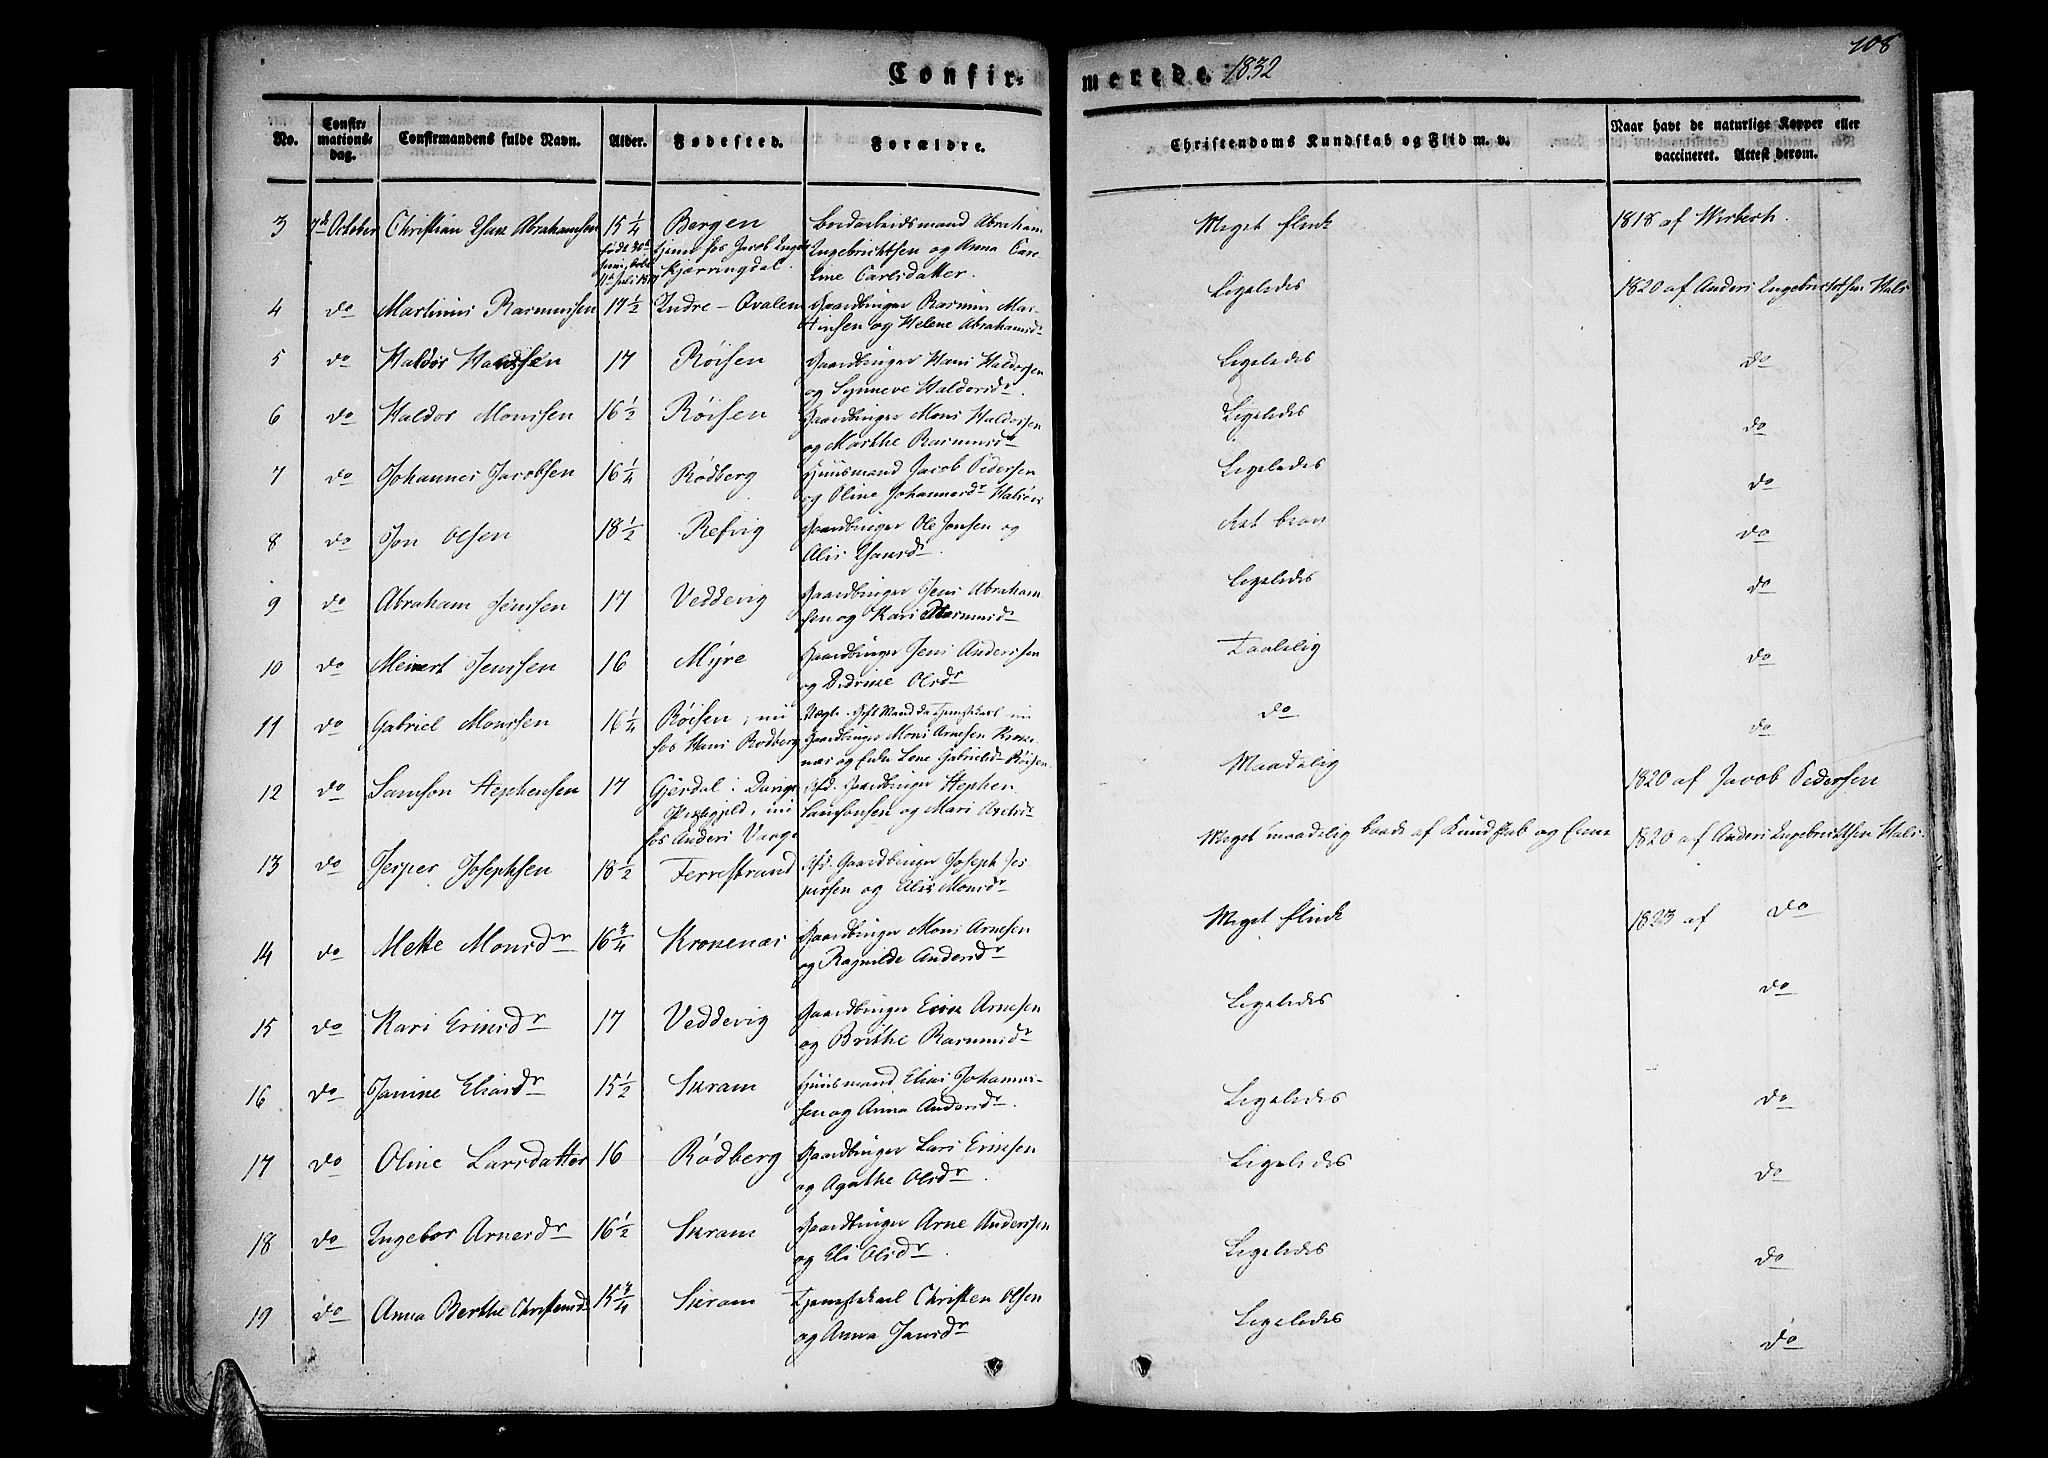 108
Confirmerede. 1832
No. | Confirmationsdag. | Confirmandens fulde Navn. | Alder. | Fødested. | Forældre. | Christendoms Kundskab og Flid m. v. | Naar havt de naturlige Kopper eller vaccineret. Attest derom.
3 7de October Christian Abrahamsen 15 1/4 Bergen Abraham
Ingebrichtsen og Anna Care
line Carlsdatter. Meget flink 1818 af Wirbech.
4 do Martinus Rasmussen 17 1/2 Indre-Qvalen Gaardbruger Rasmus Mar-
tinsen og Helene Abrahamsdr Ligeledes 1820 af Anders Ingebrichtsen Hals
5 do Haldor Hanssen 17 Röisen Gaardbruger Hans Haldorsen
og Synneve Haldorsdr. Ligeledes do
6 do Haldor Monssen 16 1/2 Röisen Gaardbruger Mons Haldorsen
og Marthe Rasmusdr Ligeledes do
7 do Johannes Jacobsen 16 1/4 Rödberg Huusmand Jacob Pedersen
og Oline Johannesdr Ligeledes do
8 do Jon Olsen 18 1/2 Refvig Gaardbruger Ole Jonsen og
Alis Hansdr. Ret brav do
9 do Abraham Jenssen 17 Veddevig Gaardbruger Jens Abraham
sen og Kari Rasmusdr Ligeledes do
10 do Meinert Jenssen 16 Myre Gaardbruger Jens Anderssen
og Bedrine Olsdr Taalelig do
11 do Gabriel Monssen 16 1/4 Röisen, nu
hos Hans Rødberg
Gaardbruger Mons Arnesen Krake-
næs og Enke Lene Gabrielsdr Röisen. do do
12 do Samson Stephensen 17 Gjerdal i Davigs
Præstegjeld, nu
hos Anders Vaage
Afd. Gaardbruger Stephen
Samsonsen og Mari Axelsdr Maadelig 1820 af Jacob Pedersen
13 do Jesper Josephsen 18 1/2 Ferrestrand Afd. Gaardbruger Joseph Jes-
persen og Elis Monsdr Meget maadelig baade af Kundskab og Evne 1820 af Anders Ingebrichtsen Hals
14 do Mette Monsdr 16 3/4 Krakenæs Gaardbruger Mons Arnesen
og Ragnilde Andersdr Meget flink 1823 af do
15 do Kari Ericsdr 17 Veddevig Gaardbruger Eric Arnesen
og Brithe Rasmusdr Ligeledes do
16 do Janine Eliasdr 15 1/2 Skram Huusmand Elias Johannes-
sen og Anna Andersdr. Ligeledes do
17 do Oline Larsdatter 16 Rödberg Gaardbruger Lars Ericsen
og Agathe Olsdr. Ligeledes do
18 do Ingebor Arnesdr 16 1/2 Skram Gaardbruger Arne Anderssen
og Eli Olsdr. Ligeledes do
19 do Anna Berthe Christensd 15 3/4 Skram Tjenestekarl Christen Olsen
og Anna Jansdr Ligeledes do